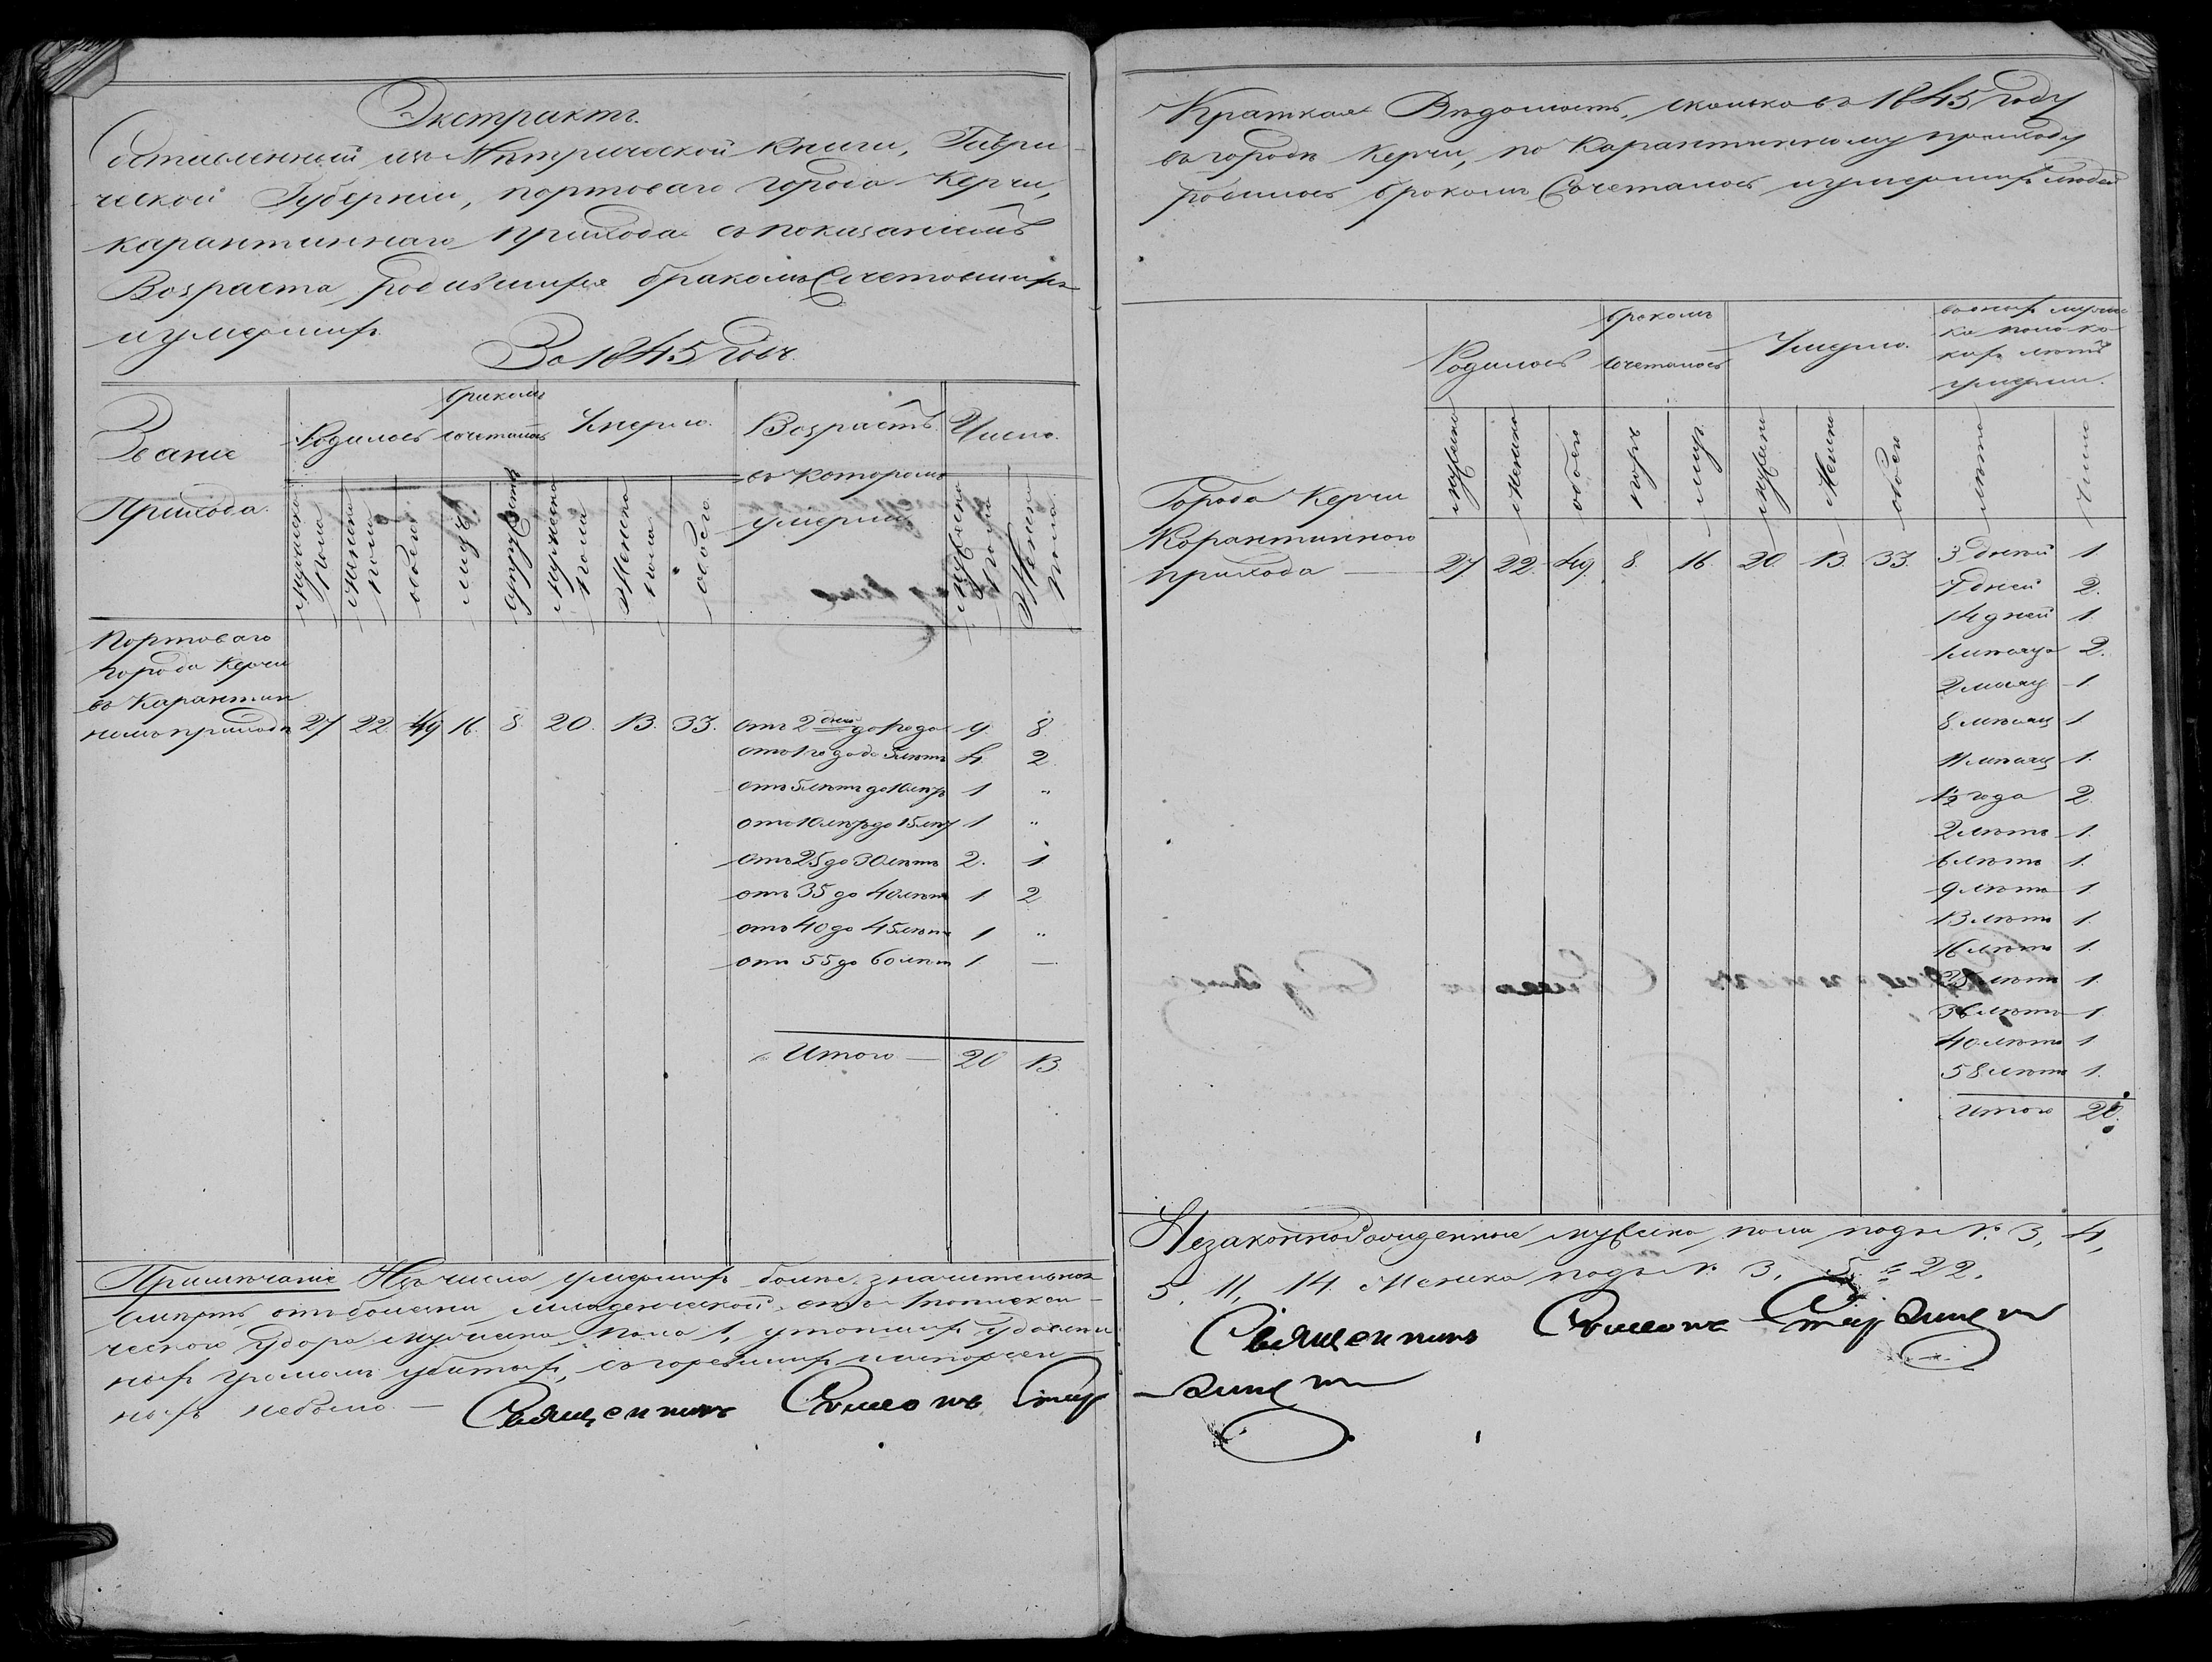 Экстрактъ.
Составленный изъ Метрической книги, Таври-
ческой Губерніи, портоваго города Керчи,
карантиннаго прихода съ показаніемъ
Возраста, родившихся бракомъ Сочетовшихся
и умершихъ.
За 1845 Годъ.
Званіе Прихода.
Родилось
бракомъ сочеталось
Умерло.
Возрастъ въ которомъ умерли
Число.
Мужеска пола
Женска пола
обоего
лицъ
супружествъ
Мужеска пола
Женска пола
обоего
Мужеска пола
Женска пола
Портоваго
города Керчи
въ Карантин
номъ приходѣ 27 22. 49 16. 8. 20. 13. 33. отъ 2 дней до 1 года 9 8
отъ 1 года до 5 лѣтъ 4 2.
отъ 5 лѣтъ до 10 1 "
отъ 10 до 15 1 "
отъ 25 до 30 лѣтъ 2. 1
отъ 35 до 40 лѣтъ 1 2
отъ 40 до 45 лѣтъ 1 "
отъ 55 до 60 лѣтъ 1 —
Итого — 20 13.
Примѣчаніе Изъ числа умершихъ болѣе значительная
смерть отъ болезни младенческой, отъ Апоплекси-
ческого Удора мужеска пола 1, утопшихъ удавлен
ныхъ громомъ убитыхъ, сгоревшихъ
ныхъ небыло. — Священникъ Симеонъ
Краткая Вѣдомость, сколько въ 1845 Году
въ городѣ Керчи, по Карантинному приходу
родилось бракомъ Сочеталось и умершихъ людей
Родилось
бракомъ сочеталось
Умерло.
ка пола ко
ихъ лѣтъ
умерли.
мужеска
женска
обоего
паръ
лицъ.
мужеска
Женска
обоего
лѣта
число
Города Керчи
Карантинного
прихода — 27. 22. 49. 8. 16. 20. 13. 33. 3 дней 1.
7 дней 2.
14 дней 1.
1 месяца 2.
2 месяц 1.
8 месяц 1
11 месяц 1.
1½ года 2
2 лѣтъ 1.
6 лѣтъ 1.
9 лѣтъ 1.
13 лѣтъ 1.
16 лѣтъ 1.
28 лѣтъ 1.
36 лѣтъ 1.
40 лѣтъ 1
58 лѣтъ 1.
Итого 20.
Незаконнорожденные мужеска пола подъ №. 3, 4,
5, 11, 14. Женска подъ №. 3, 5 и 22.
Священникъ Симеонъ